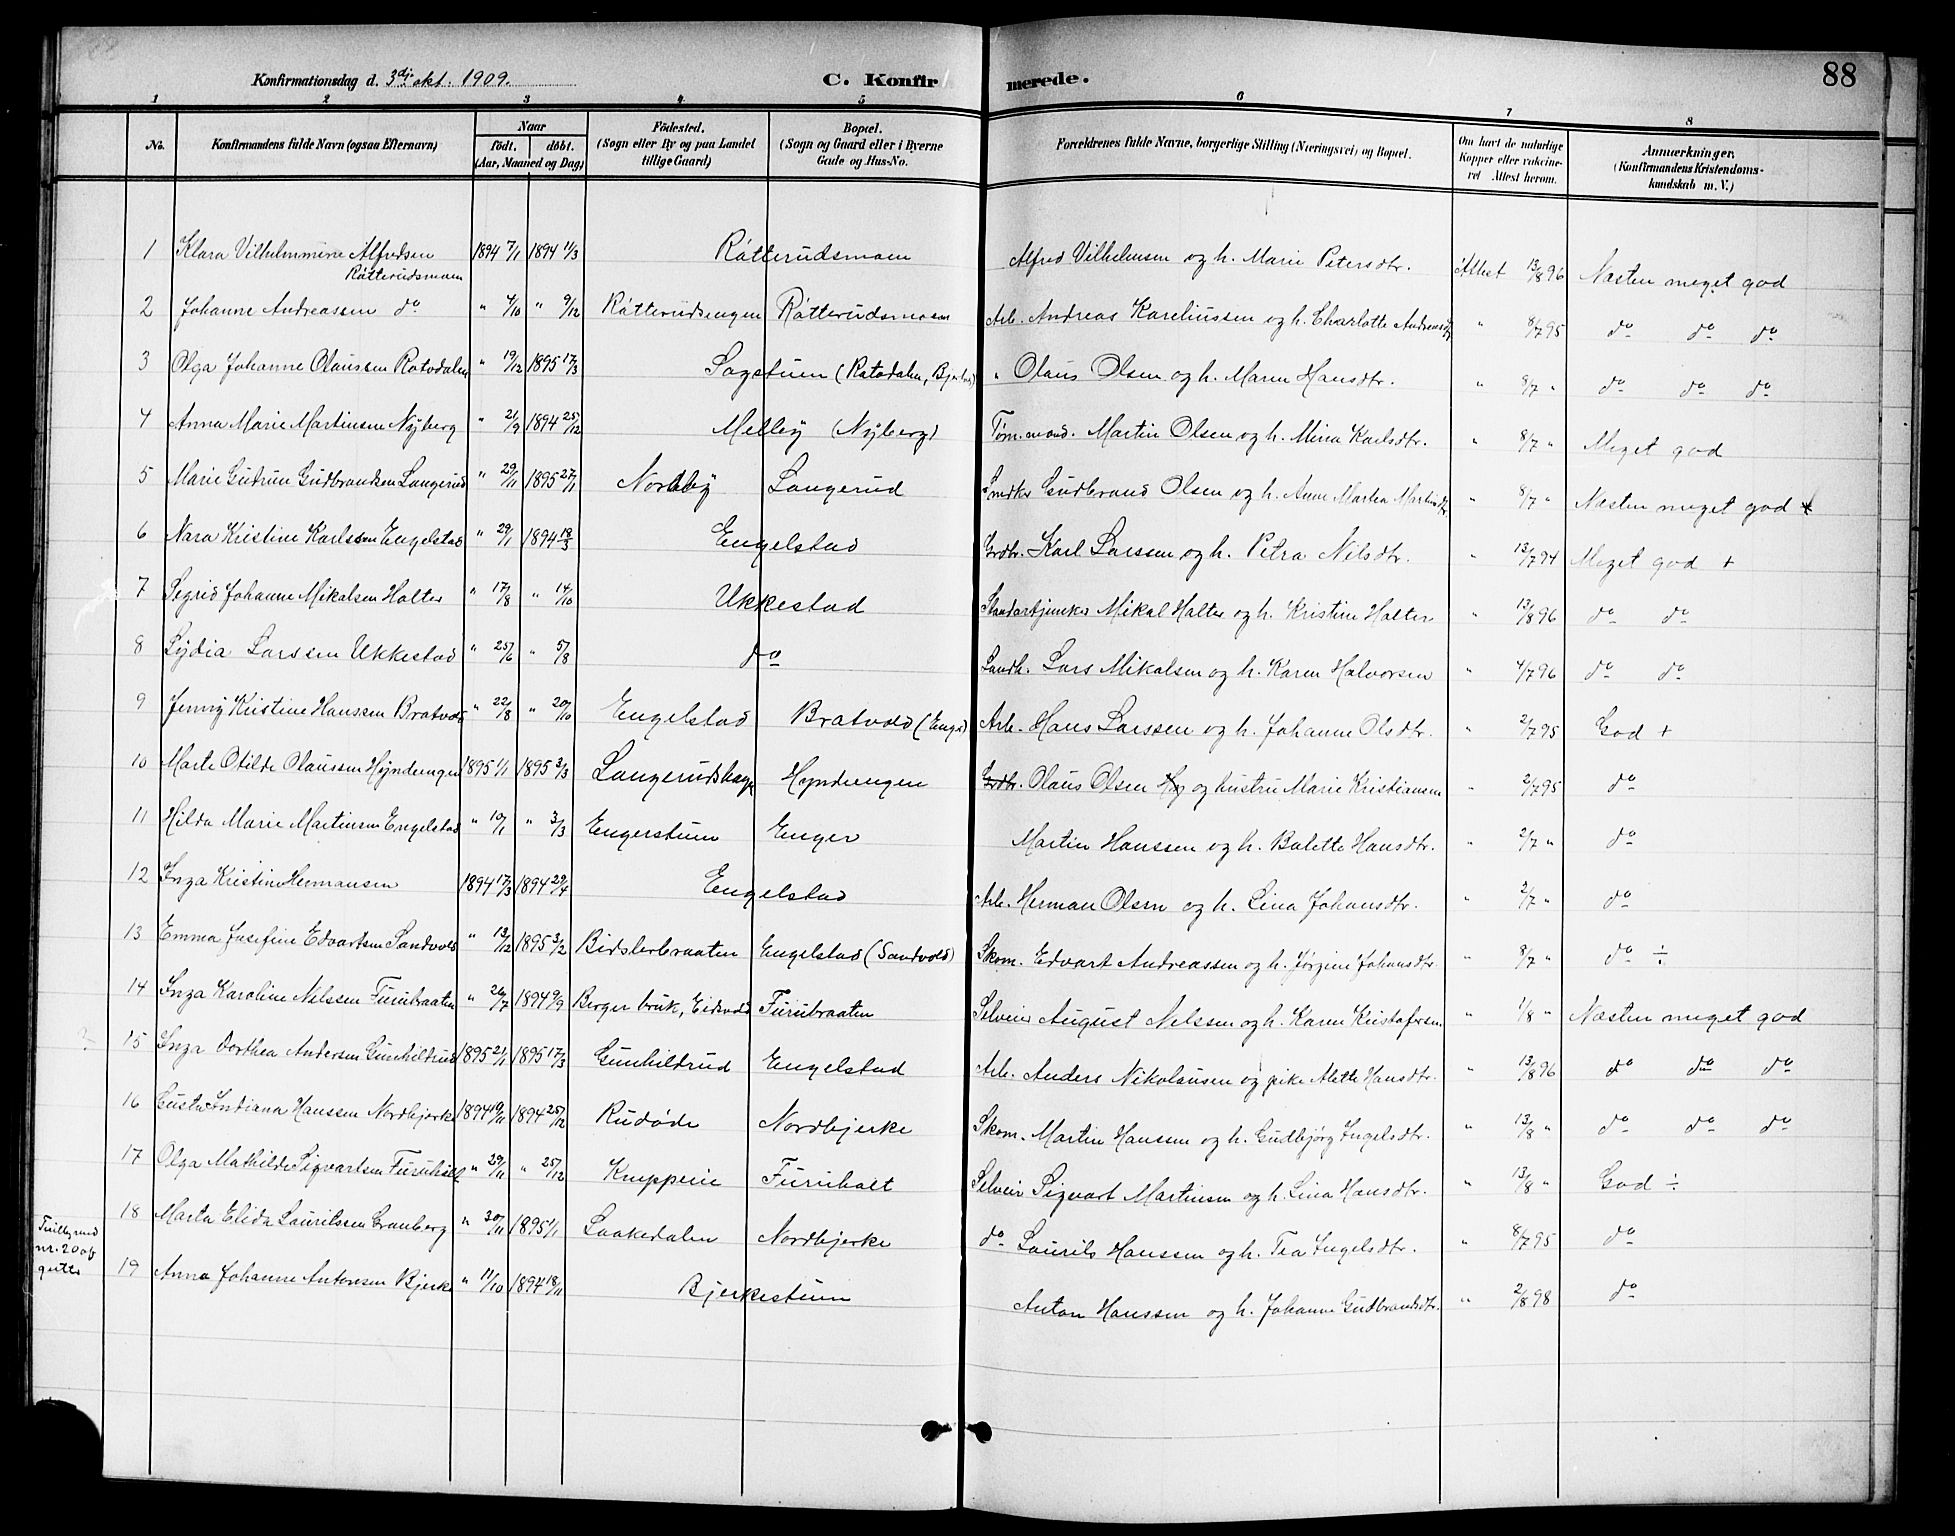 Konfirmationsdag d. 3dje okt. 1909. C. Konfirmerede. 88
1 2 3 4 5 6 7 8
No. Konfirmandens fulde Navn (ogsaa Efternavn) Naar født. døbt. (Aar, Maaned og Dag) Fødested. (Sogn eller By og paa Landet tillige Gaard) Bopæl. (Sogn og Gaard eller i Byerne Gade og Hus-No. Forældrenes fulde Navne, borgerlige Stilling (Næringsvei) og Bopæl. Om havt de naturlige Kopper eller vakcineret Attest herom. Anmærkninger, (Konfirmandens Kristendomskundskab m. V.)
1 Klara Vilhelmmine Alfredsen Råtterudsmoen 1894 7/1 1894 11/3 Råtterudsmoen Alfred Vilhelmsen og h. Marie Petersdtr. Attest 13/8 96 Næsten meget god
2 Johanne Andreassen do " 4/10 " 9/12 Råtterudsengen Råtterudsmoen Arb. Andreas Kareliussen og h. Charlotte Andreasdtr " 8/7 95 do do do
3 Olga Johanne Olaussen Ratvdalen " 19/12 1895 17/3 Sagstuen (Ratvdalen, Bjerke) " Olaus Olsen og h. Maren Hansdtr. " 8/7 " do do do
4 Anna Marie Martinsen Nyberg " 21/9 1894 25/12 Melby (Nyberg) Tømmermd. Martin Olsen og h. Mina Karlsdtr. " 8/7 " Meget god
5 Marie Gudrun Gudbrandsen Langerud " 29/11 1895 27/1 Nordby Langerud Snedker Gudbrand Olsen og h. Anne Martea Martinsdtr " 8/7 " Næsten meget god +
6 Nara Kristine Karlsen Engelstad " 29/1 1894 18/3 Engelstad Grdbr. Karl Larssen og h. Petra Nilsdtr. " 13/7 94 Meget god +
7 Sigrid Johanne Mikalsen Holter " 17/8 " 14/10 Ukkestad Standartjunker Mikal Holter og h. Kristine Holter " 13/8 96 do do
8 Lydia Larssen Ukkestad " 25/6 " 5/8 do Landh. Lars Mikalsen og h. Karen Halvorsen " 4/7 96 do do
9 Jenny Kristine Hanssen Bratvold " 22/8 " 20/10 Engelstad Bratvold (Enger) Arb. Hans Larssen og h. Johanne Olsdtr. " 2/7 95 God +
10 Marte Otilde Olaussen Høyndengen 1895 1/1 1895 3/3 Langerudshagen Høyndengen Grdbr. Olaus Olsen og hustru Marie Kristiansen " 2/7 95 do
11 Hilda Marie Martinsen Engelstad " 10/1 " 3/3 Engerstuen Enger Martin Hanssen og h. Bolette Hansdtr. " 2/7 " do
12 Inga Kristine Hermansen 1894 17/3 1894 29/4 Engelstad Arb. Herman Olsen og h. Lina Johansdtr. " 2/7 " do
13 Emma Josefine Edvartsen Sandvold " 13/12 1895 3/2 Bidslerbraaten Engelstad (Sandvold) Skom. Edvart Andreassen og h. Jørgine Johansdtr " 8/7 " do ÷
14 Inga Karoline Nilssen Furubraaten " 26/7 1894 9/9 Berger bruk, Eidsvold Furubraaten Selveier August Nilssen og h. Karen Kristofersen " 1/8 " Næsten meget god
15 Inga Dorthea Andersen Gunhildrud 1895 21/1 1895 17/3 Gunhildrud Engelstad Arb. Anders Nikolausen og pike Alette Hansdtr. " 13/8 96 do do do
16 Gusta Indiana Hanssen Nordbjerke 1894 19/11 1894 25/12 Rudøde Nordbjerke Skom. Martin Hanssen og h. Gudbjørg Engelsdtr. " 13/8 " do do do
17 Olga Mathilde Sigvartsen Furuholt " 29/11 " 25/12 Knepperie Furuholt Selveier Sigvart Martinsen og h. Lina Hansdtr. " 13/8 " God ÷
18 Marta Elida Lauritssen Granberg " 30/11 1895 1/1 Laakedalen Nordbjerke do Laurits Hanssen og h. Tea Engelsdtr. " 8/7 95 do
19 Anna Johanne Antonsen Bjerke " 11/10 1894 18/11 Bjerkestuen Anton Hanssen og h. Johanne Gudbrandsdtr. " 2/8 98 do
nr. 20 af
gutter